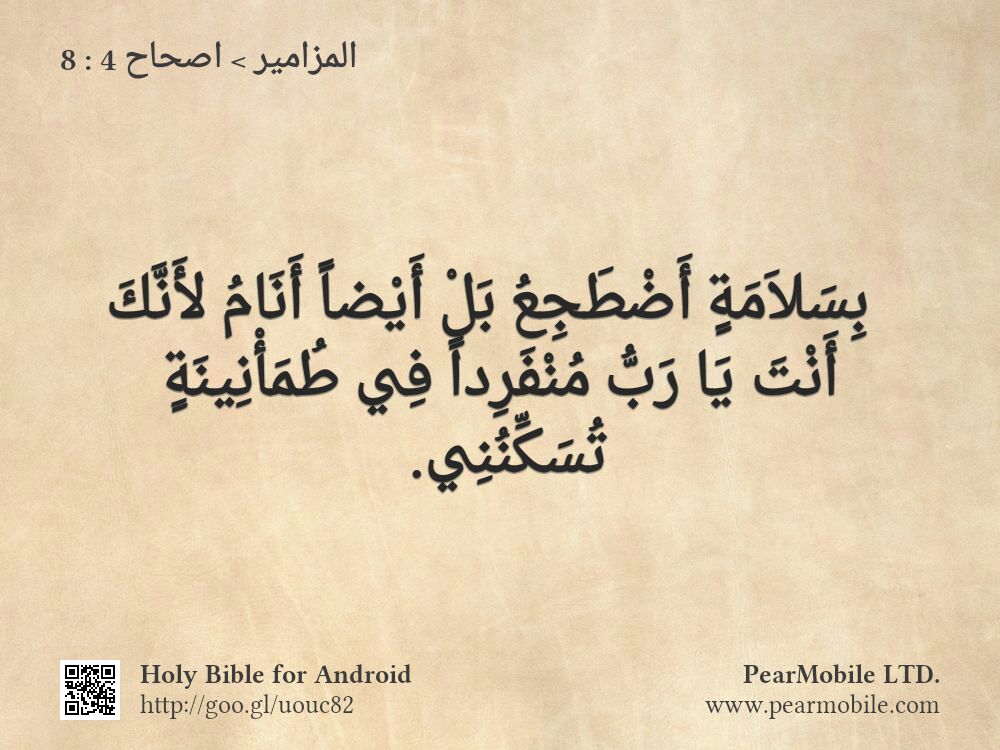 المزامير > اصحاح 4 : 8
بِسَلاَمَةٍ أَضْطَجِعُ بَلْ أَيْضاً أَنَامُ لأَنَّكَ
أَنْتَ يَا رَبُّ مُنْفَرِداً فِي طُمَأْنِينَةٍ
تُسَكِّنُنِي.
Holy Bible for Android
http://goo.gl/uouc82
PearMobile LTD.
www.pearmobile.com